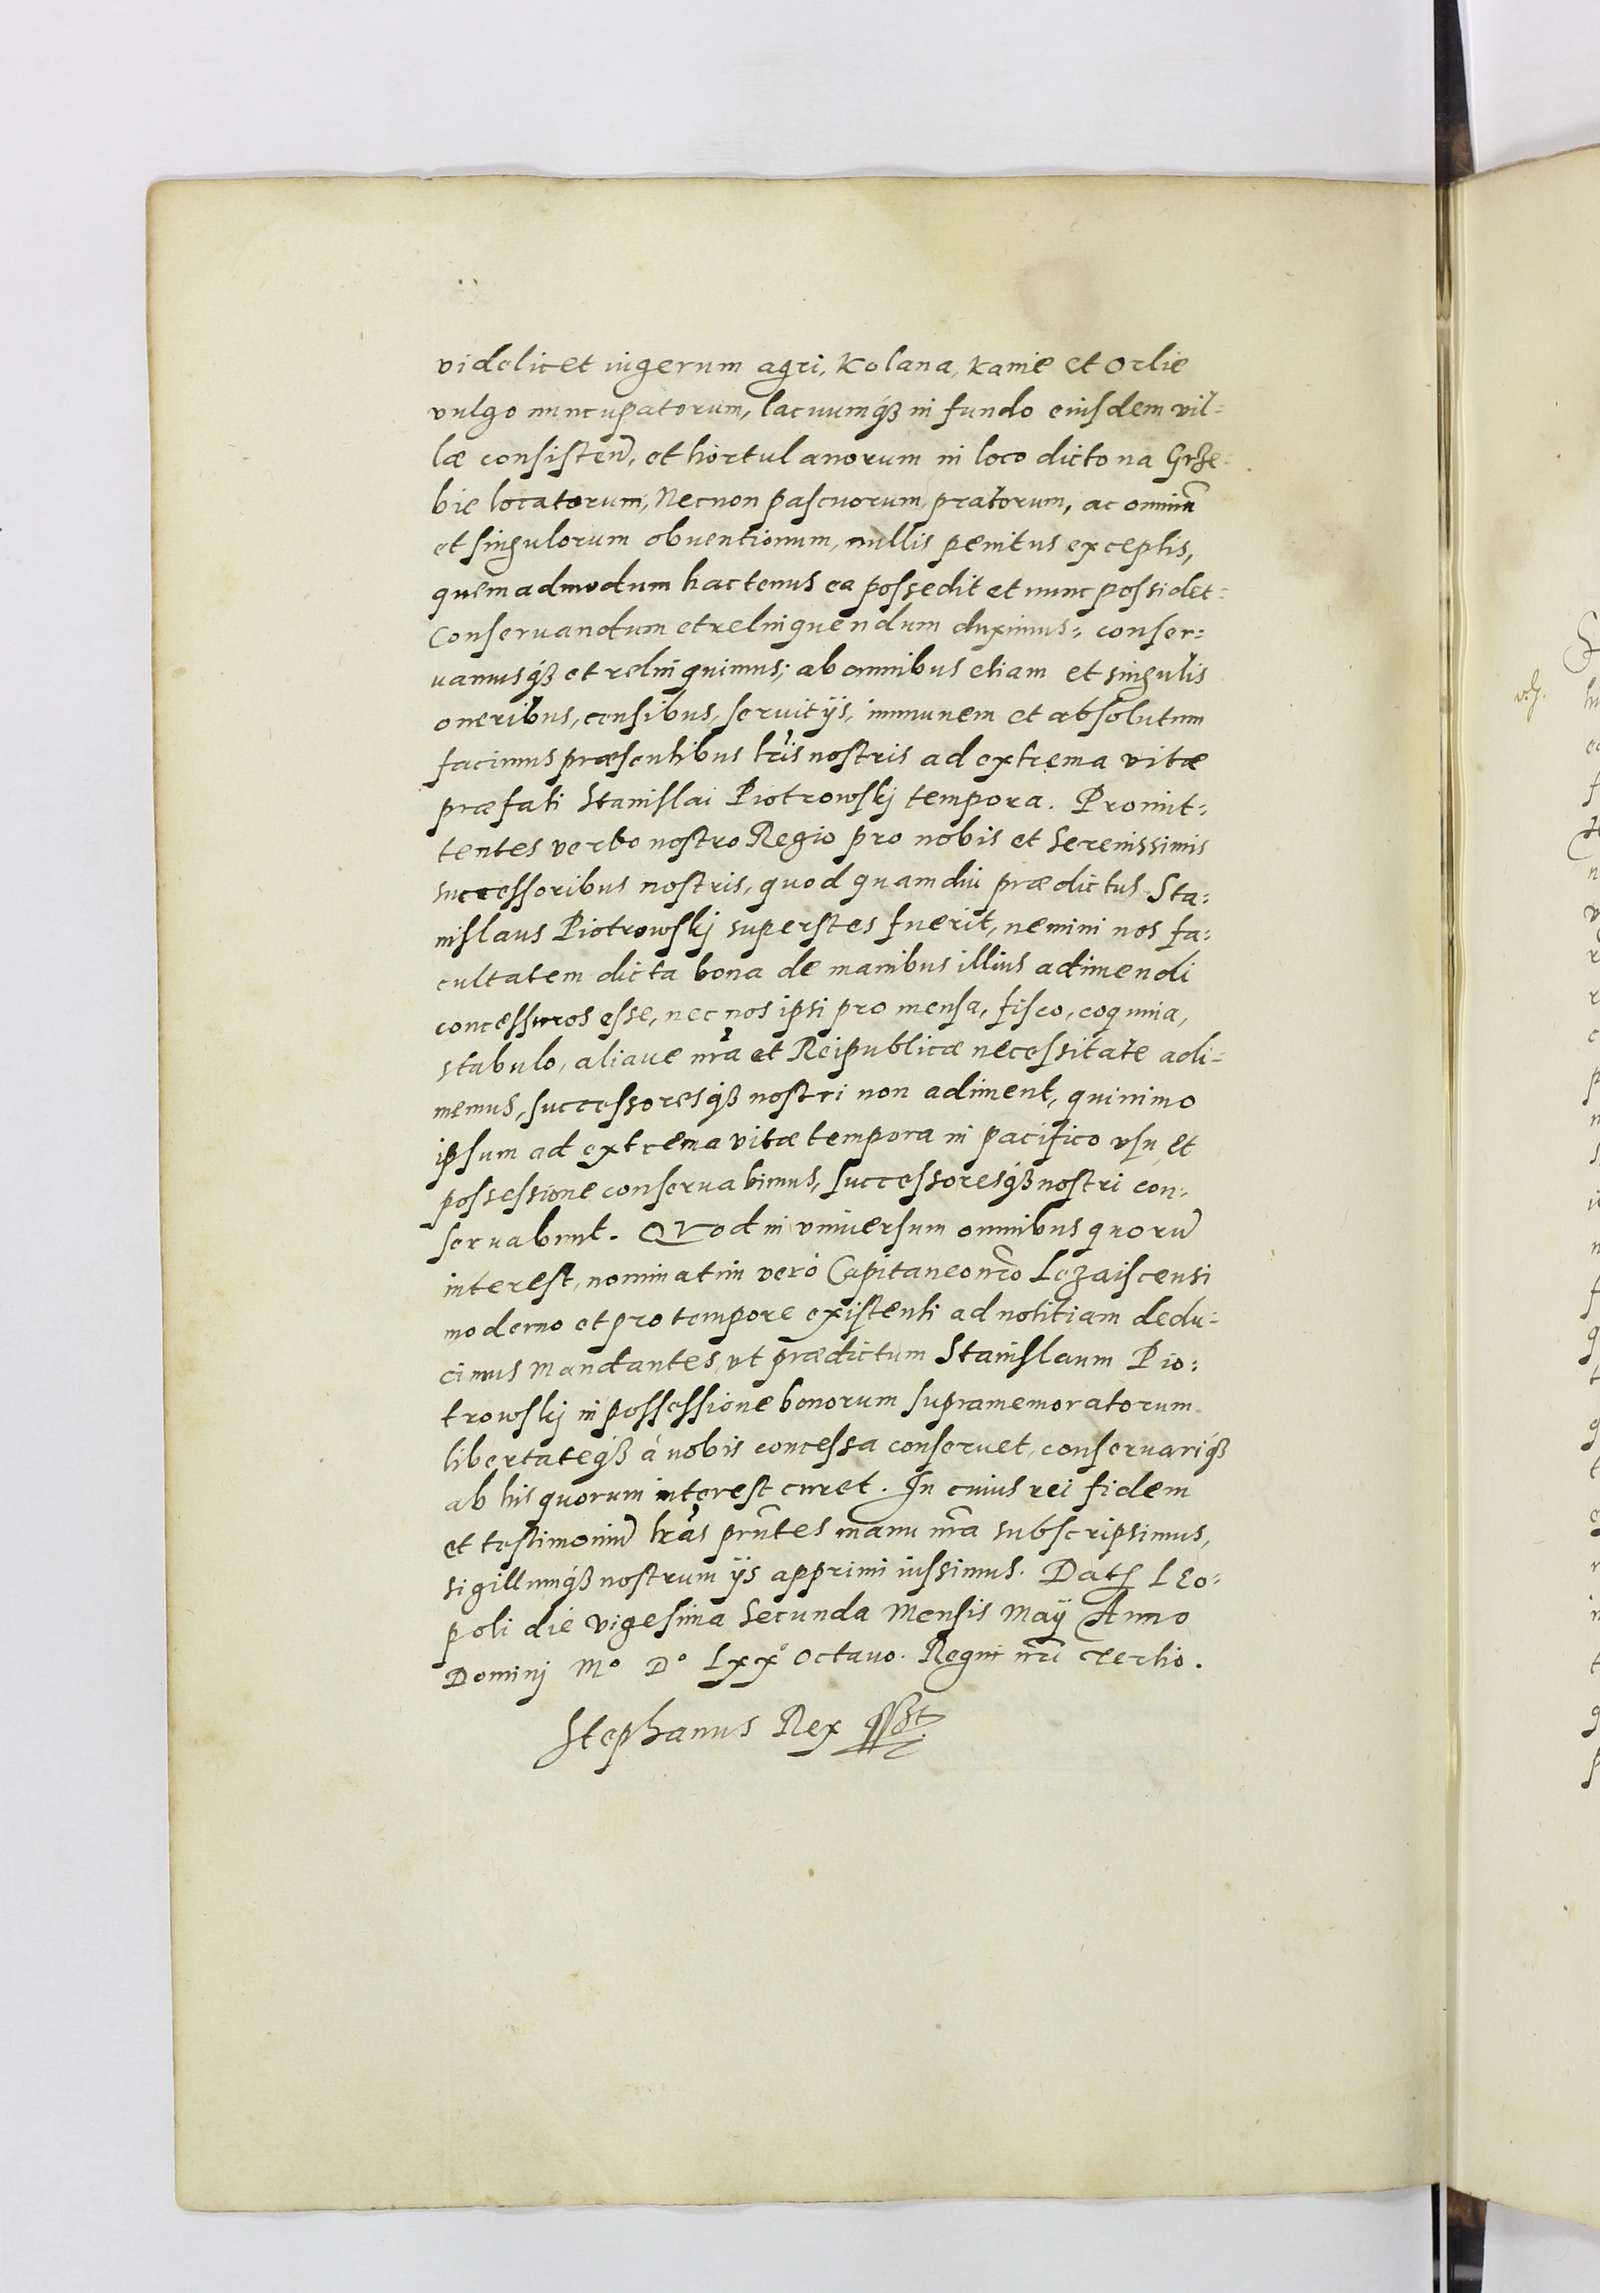 videlicet iugerum agri, Kolana, Kanie et Orlie
vulgo nuncupatorum, lacuumq́ꝫ in fundo eiusdem vil=
læ consisteñ, et hortulanorum in loco dicto na Grze=
bie locatorum, Necnon pascuorum pratorum, ac omniũ
et singulorum obuentionum, nullis penitus exceptis,
quemadmodum hactenus ea possedit et nunc possidet=
Conseruandum et relinquendum duximus= conser=
uamusq́ꝫ et relinquimus; ab omnibus etiam et singulis
oneribus, censibus, seruitijs, immunem et absolutum
facimus præsentibus lr̃is nostris ad extrema vitæ
præfati Stanislai Piotrowskj tempora. Promit=
tentes verbo nostro Regio pro nobis et Serenissimis
successoribus nostris, quod quamdiu prædictus Sta=
nislaus Piotrowskj superstes fuerit, nemini nos fa=
cultatem dicta bona de manibus illius adimendi
concessuros esse, nec nos ipsi pro mensa, fisco, coquina,
stabulo, aliaue nr̃a et Reipublicæ necessitate adi=
memus, successoresq́ꝫ nostri non adiment, quinimo
ipsum ad extrema vitæ tempora in pacifico vsu et
possessione conseruabimus, successoresq́ꝫ nostri con=
seruabunt. QVod in vniuersum omnibus quorũ
interest, nominatim verò Capitaneo nr̃o Lezaiscensi
moderno et pro tempore existenti ad notitiam dedu=
cimus Mandantes, vt prædictum Stanislaum Pio=
trowskj in possessione bonorum supramemoratorum
libertateq́ꝫ à nobis concessa conseruet, conseruariq́ꝫ
ab his quorum interest curet. In cuius rei fidem
et testimoniũ lr̃as prñtes manu nr̃a subscripsimus,
sigillumq́ꝫ nostrum ijs apprimi iussimus. Datꝭ Leo=
poli die vigesima Secunda Mensis Maij Anno
Dominj Mº Dº Lxxº Octauo. Regni nr̃i Tertio.
Stephanus Rex sst